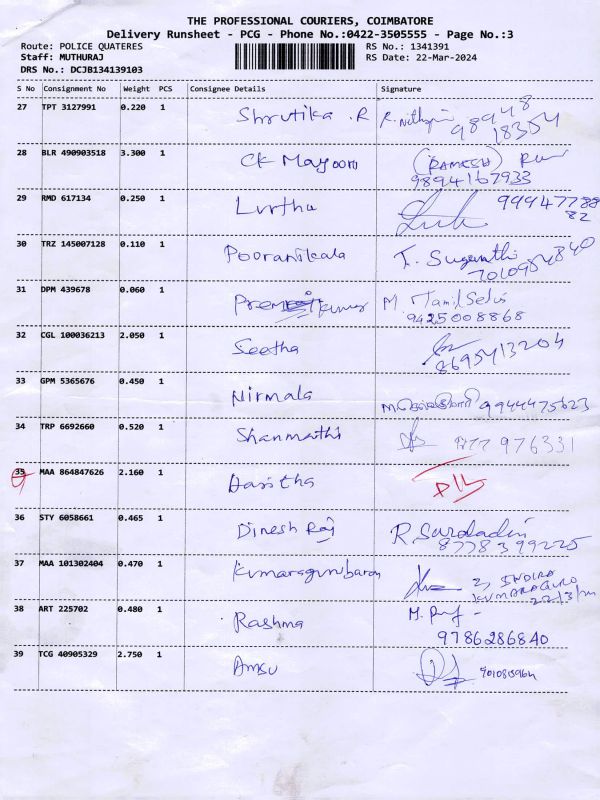 THE PROFESSIONAL COURIERS, COIMBATORE
Delivery Runsheet - PCG - Phone No.:0422-3505555 - Page No.:3
Route: POLICE QUATERES RS No.: 1341391
Staff: MUTHURAJ RS Date: 22-Mar-2024
DRS No.: DCJB134139103
S No Consignment No Weight PCS Consignee Details Signature
27 TPT 3127991 0.220 1 Shrutika .R
98948
18354
28 BLR 490903518 3.300 1 CK Mayoori (RAMESH)
9894167933
29 RMD 617134 0.250 1 99947788
82
30 TRZ 145007128 0.110 1 Pooranikala T. Suganthi
7010954840
31 DPM 439678 0.060 1 kumar M. Tamil Selvi
9425008868
32 CGL 100036213 2.050 1 Seetha
8695413204
33 GPM 5365676 0.450 1 Nirmala 9944475623
34 TRP 6692660 0.520 1 Shanmathi 976331
35 MAA 864847626 2.160 1 Hasitha D/L
36 STY 6058661 0.465 1 Dinesh Raj R.
8778399225
37 MAA 101302404 0.470 1 Kumaragurubaran INDIRA
KUMARAGURU
38 ART 225702 0.480 1 Rashma M.
9786286840
39 TCG 40905329 2.750 1 Amsu